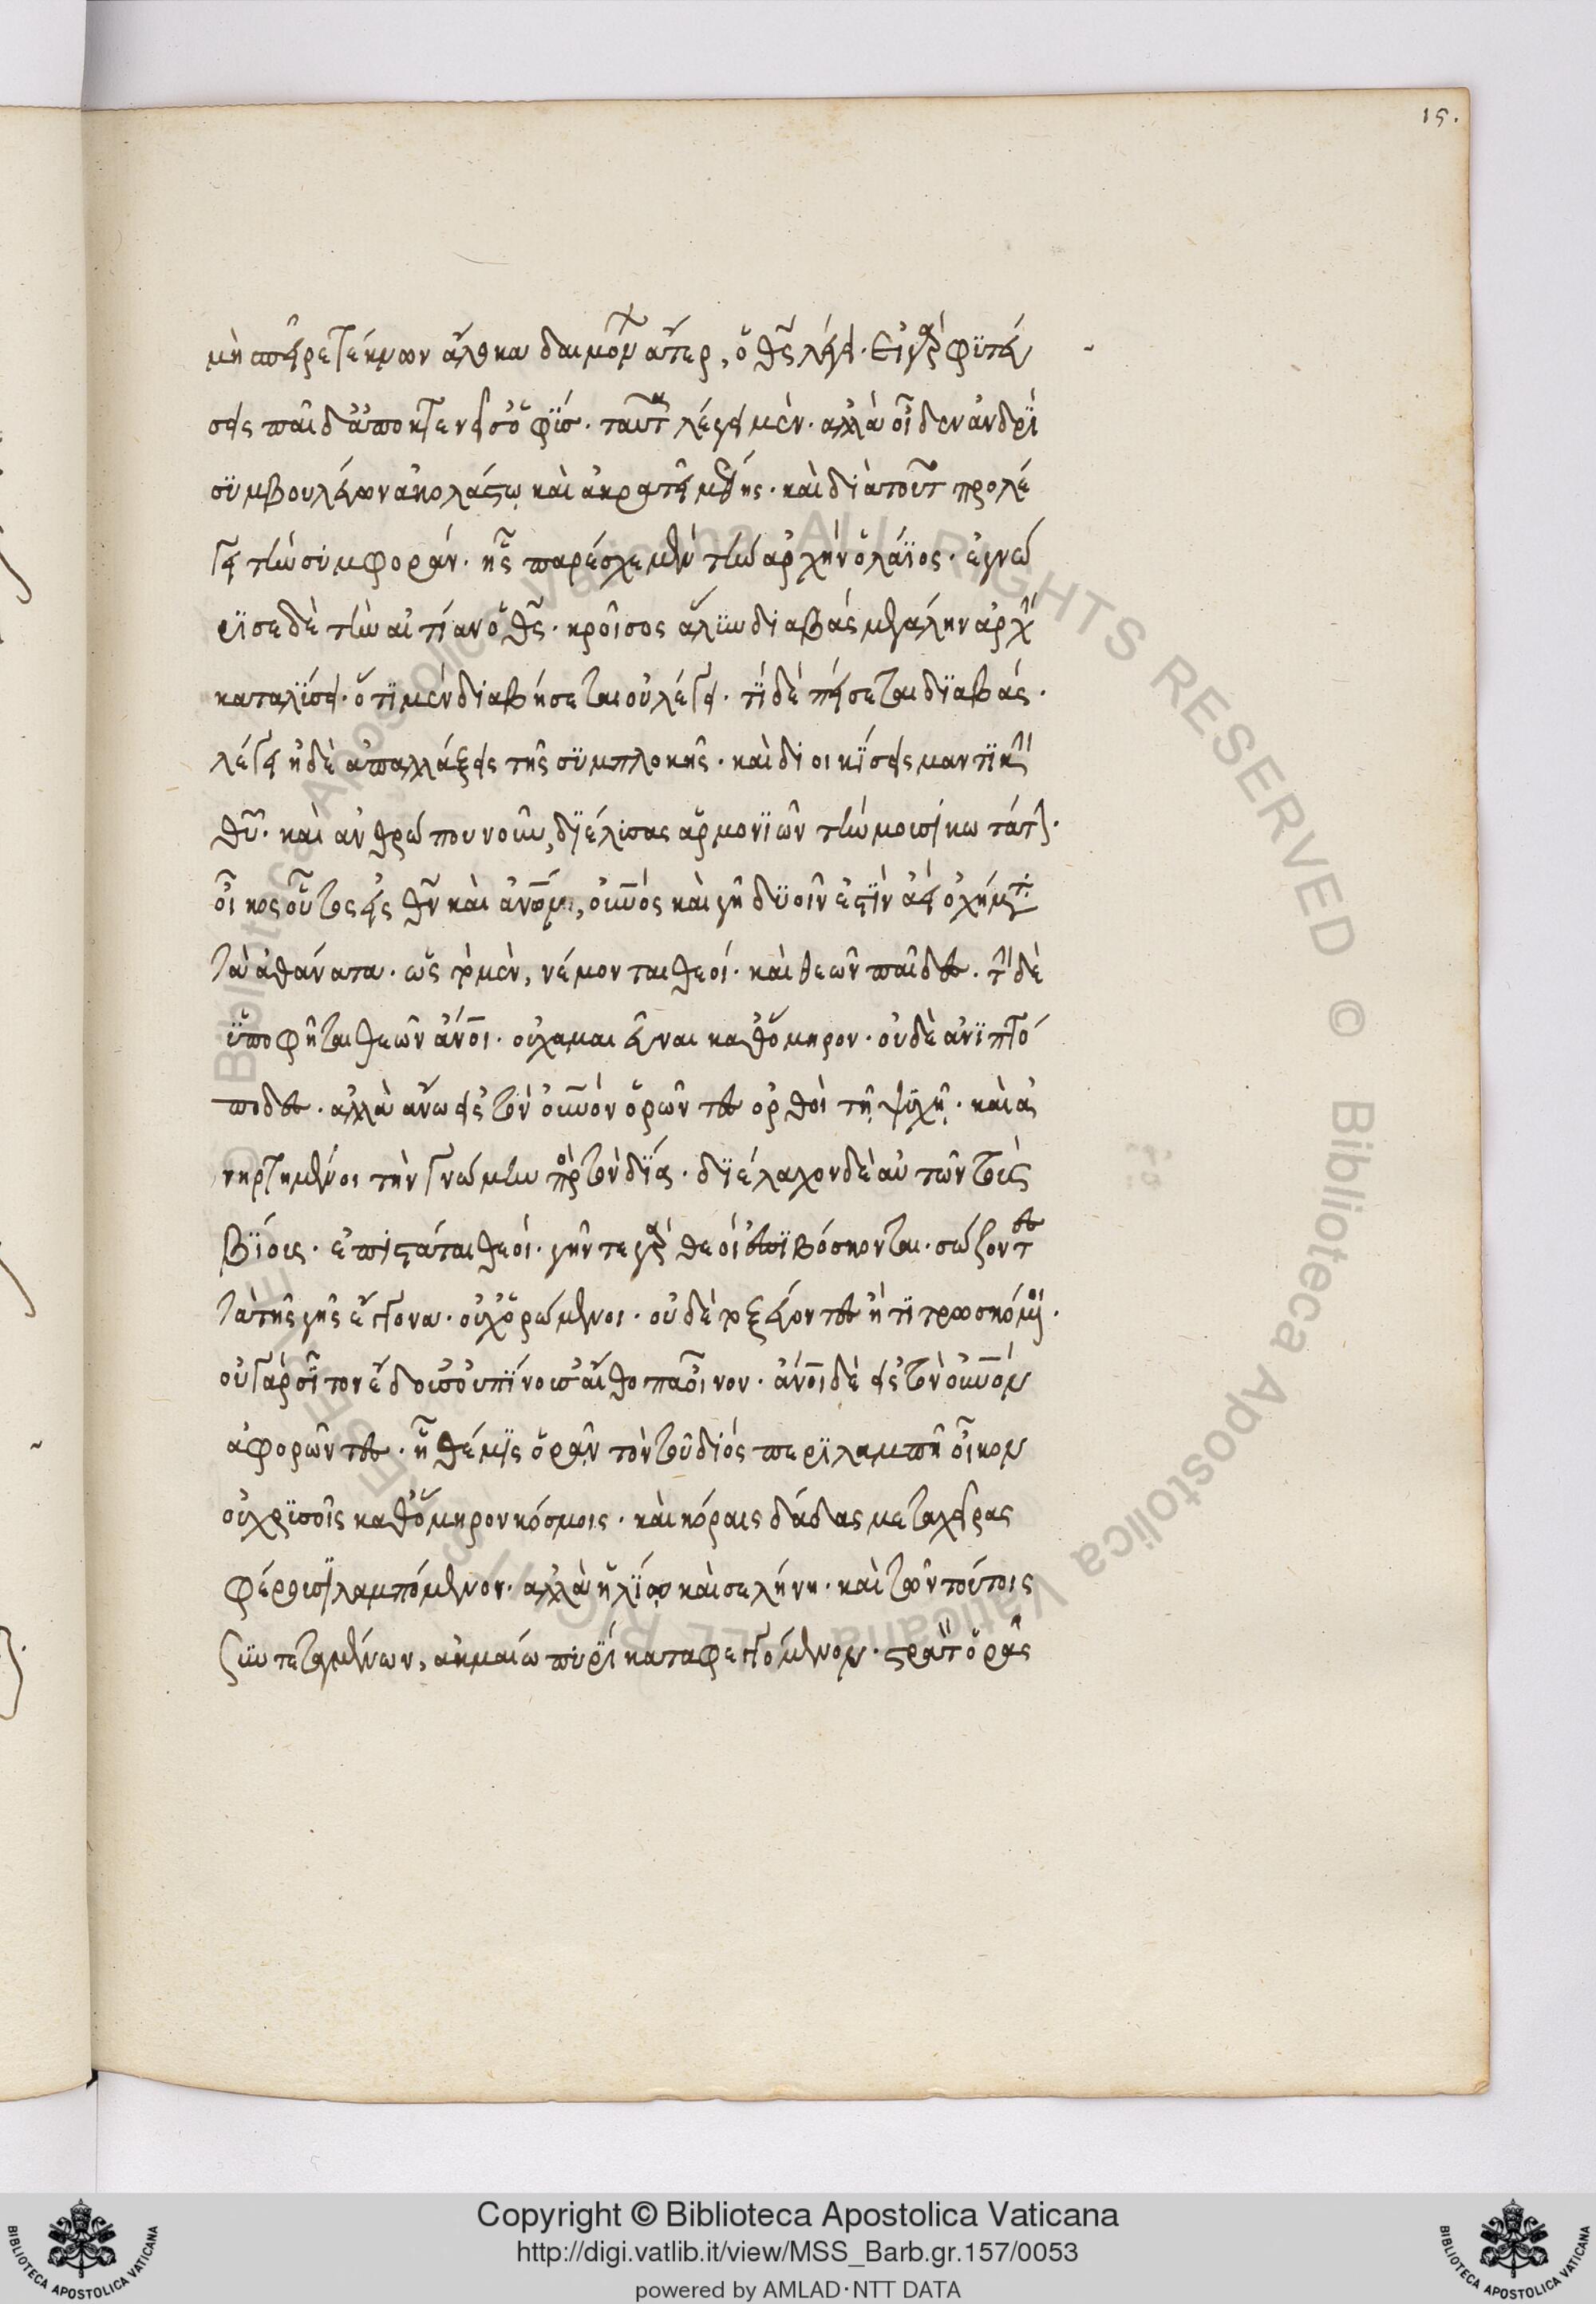 15.
μὴ σπεῖρε τέκνων ἄλοκα δαιμόνων ἄτερ, ὁ θεὸς λέγει. εἰ γὰρ φϋτεύ
σεις παῖδ' ἀποκτενεῖ σ' ὁ φΰς. ταῦτα λέγει μὲν. ἀλλὰ οἶδεν ἀνδρὶ
σϋμβουλεύων ἀκολάστῳ καὶ ἀκρατεῖ μέθης. καὶ διὰ τοῦτο προλέ
γει τὴν συμφορὰν. ἧς παρέσχε μὲν τὴν ἀρχὴν ὁ λάϊος. ἐγνώ
ρισε δὲ τὴν αἰτίαν ὁ θεός. κροῖσος ἅλϋν διαβὰς μεγάλην ἀρχὴν
καταλύσει. ὅτι μὲν διαβήσεται οὐ λέγει. τί δὲ πείσεται διαβάς.
λέγει ἢ δὲ ἀπαλλάξεις τῆς σϋμπλοκῆς. καὶ διοικίσεις μαντικὴν
θεοῦ. καὶ ἀνθρώπου νοῦν, διέλυσας ἁρμονιῶν τὴν μουσικωτάτην.
οἶκος οὗτος εἷς θεῶν καὶ ἀνθρώπων, οὐρανὸς καὶ γῆ δυοῖν ἐστὶν ἀεὶ ὀχήματα
τὰ ἀθάνατα. ὡς τὸν μὲν, νέμονται θεοί. καὶ θεῶν παῖδες. τὴν δὲ
ὑποφῆται θεῶν ἄνθρωποι. οὐ χαμαιεῦναι καθ' ὅμηρον. οὐδὲ ἀνιπτό
ποδες. ἀλλὰ ἄνω εἰς τὸν οὐρανὸν ὁρῶντες ὀρθοὶ τῇ ψϋχῇ. καὶ ἀ
νηρτημένοι τὴν γνώμην πρὸς τὸν δία. διέλαχον δὲ αὐτῶν τοῖς
βίοις. ἐπιστάται θεοί. γῆν τε γὰρ θεοὶ ἐπιβόσκονται. σώζοντες
τὰ τῆς γῆς ἔκγονα. οὐχ ὁρώμενοι. οὐδὲ τοξεύοντες ἢ τιτρωσκόμενοι.
οὐ γὰρ σῖτον ἔδουσ' οὐ πίνουσ' αἴθοπα οἶνον. ἄνθρωποι δὲ εἰς τὸν οὐρανὸν
ἀφορῶντες. ᾗ θέμις ὁρᾷν τὸν τοῦ διὸς περιλαμπῆ οἶκον
οὐ χρϋσοῖς καθ' ὅμηρον κόσμοις. καὶ κόραις δάδας μετὰ χεῖρας
φέρουσι λαμπόμενον. ἀλλὰ ἡλίῳ καὶ σελήνῃ. καὶ τῶν τούτοις
συντεταγμένων, ἀκμαίω πυρὶ καταφεγγόμενον. στρατὸν ὁρᾷς
Copyright © Biblioteca Apostolica Vaticana
http://digi.vatlib.it/view/MSS_Barb.gr.157/0053
powered by AMLAD·NTT DATA
BIBLIOTECA APOSTOLICA VATICANA
BIBLIOTECA APOSTOLICA VATICANA
© Biblioteca Apostolica Vaticana ALL RIGHTS RESERVED © Biblioteca Apostolica Vaticana ALL RIGHTS RESERVED